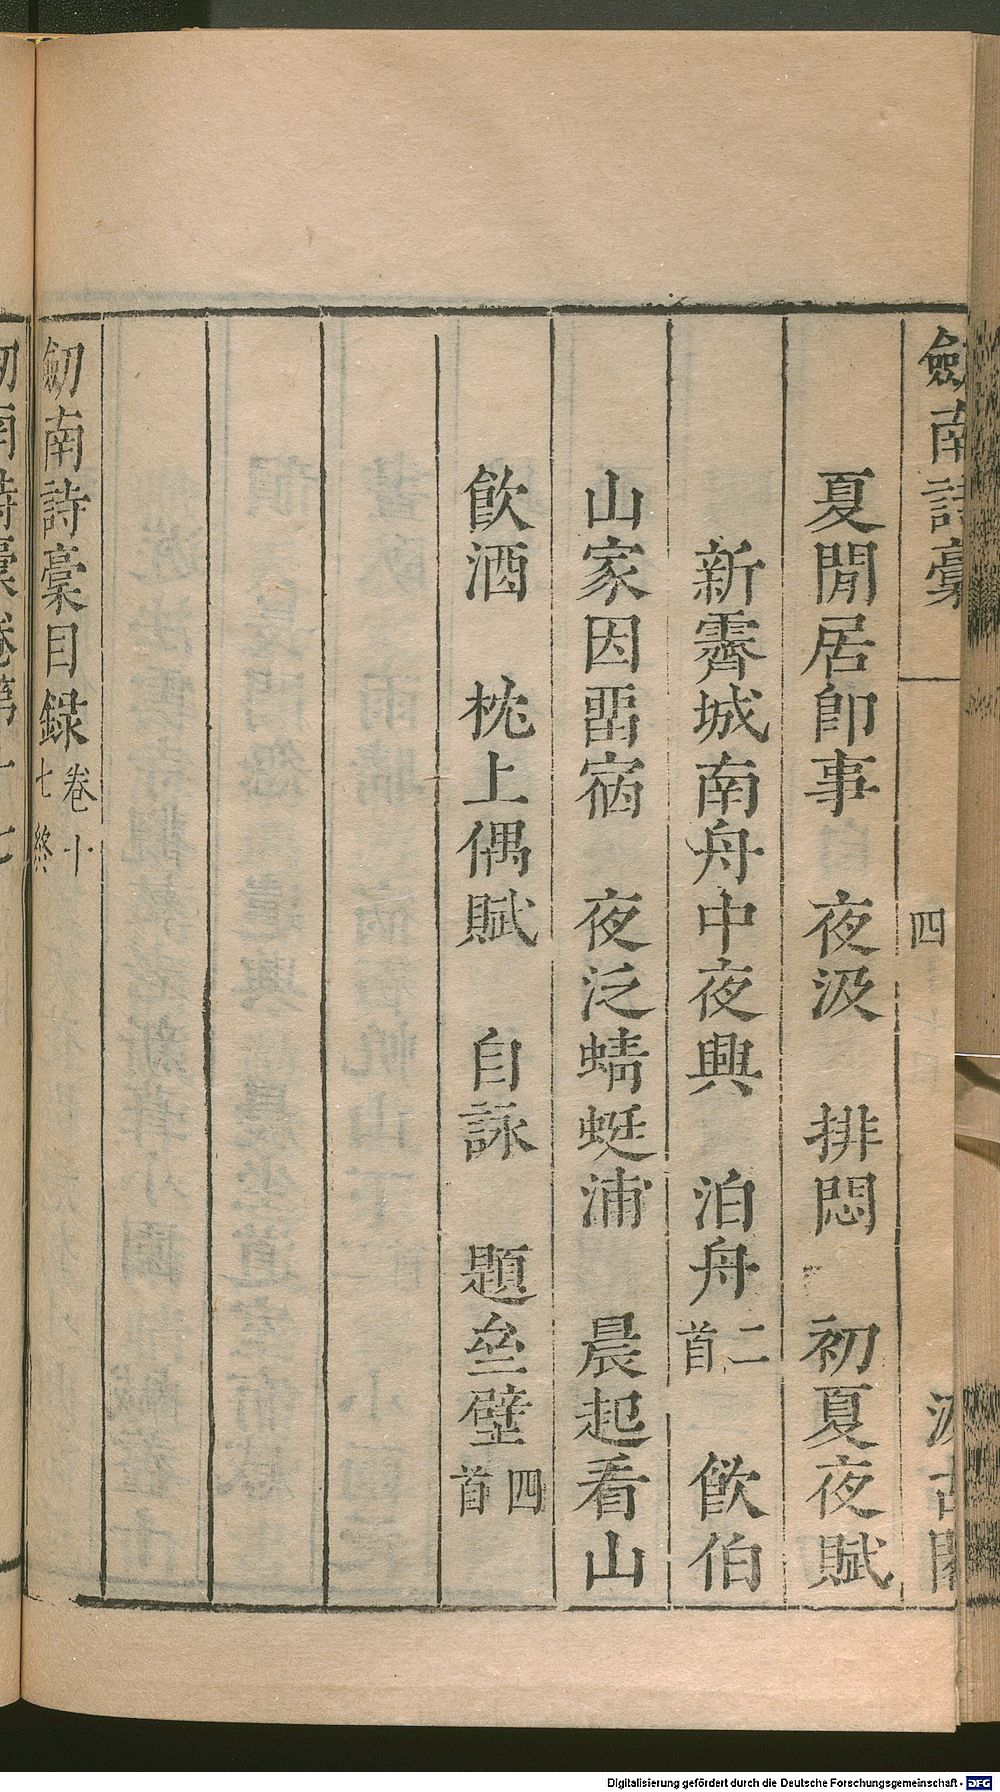 劒南詩稾
四
汲古閣
夏閒居卽事　夜汲　排悶　初夏夜賦
新霽城南舟中夜興　泊舟二首　飮伯
山家因畱宿　夜泛蜻蜓浦　晨起看山
飮酒　枕上偶賦　自詠　題垒壁四首
劒南詩稾目録卷十七終
Digitalisierung gefördert durch die Deutsche Forschungsgemeinschaft - DFG